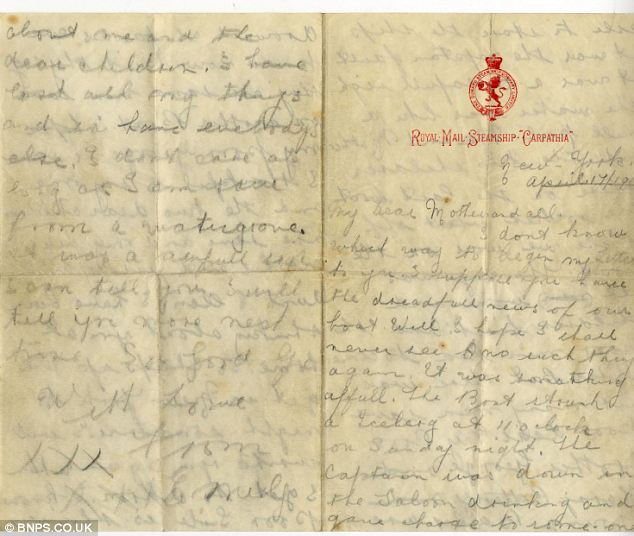 ROYAL·MAIL·STEAMSHIP·"CARPATHIA"
New York
April 17/19
My dear Mother and all.
I dont know
what way to began my letter
to you I suppose you have
the dreadfull news of our
boat Well I hope I shall
never see no such thing
again. It was something
affull. The Boat struck
a Iceberg at 11 oclock
on Sunday night. The
Captain was down in
the Saloon drinking and
gave charge to some one
about me and the
dear children. I have
lost all my things
and so have everbody
else, I dont care as
long as I am save
from a
I was a awfull sight
I can tell you I will
tell you more next
time So Good
With Love
from
XXX
© BNPS.CO.UK